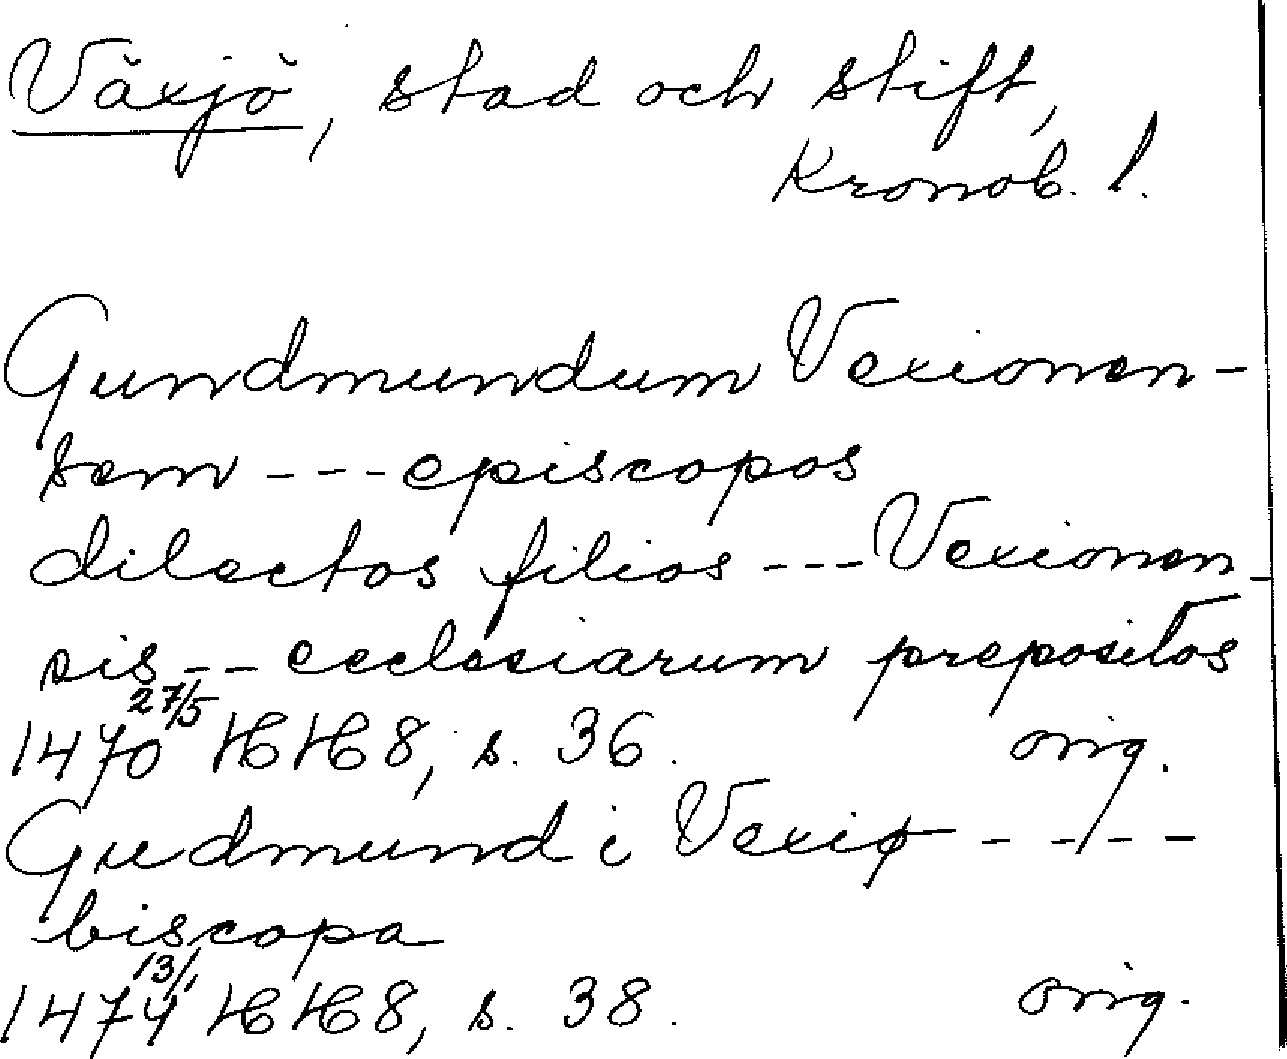 Växjö, stad och stift,
Kronob. l.
Gundmundum Vexionen-
sem --- episcopos
dilectos filios --- Vexionen-
sis -- ecclesiarum prepositos
1470 27/5 HH 8, s. 36. orig.
Gudmund i Vexiø ----
biscopa
1474 13/1 HH 8, s. 38. orig.